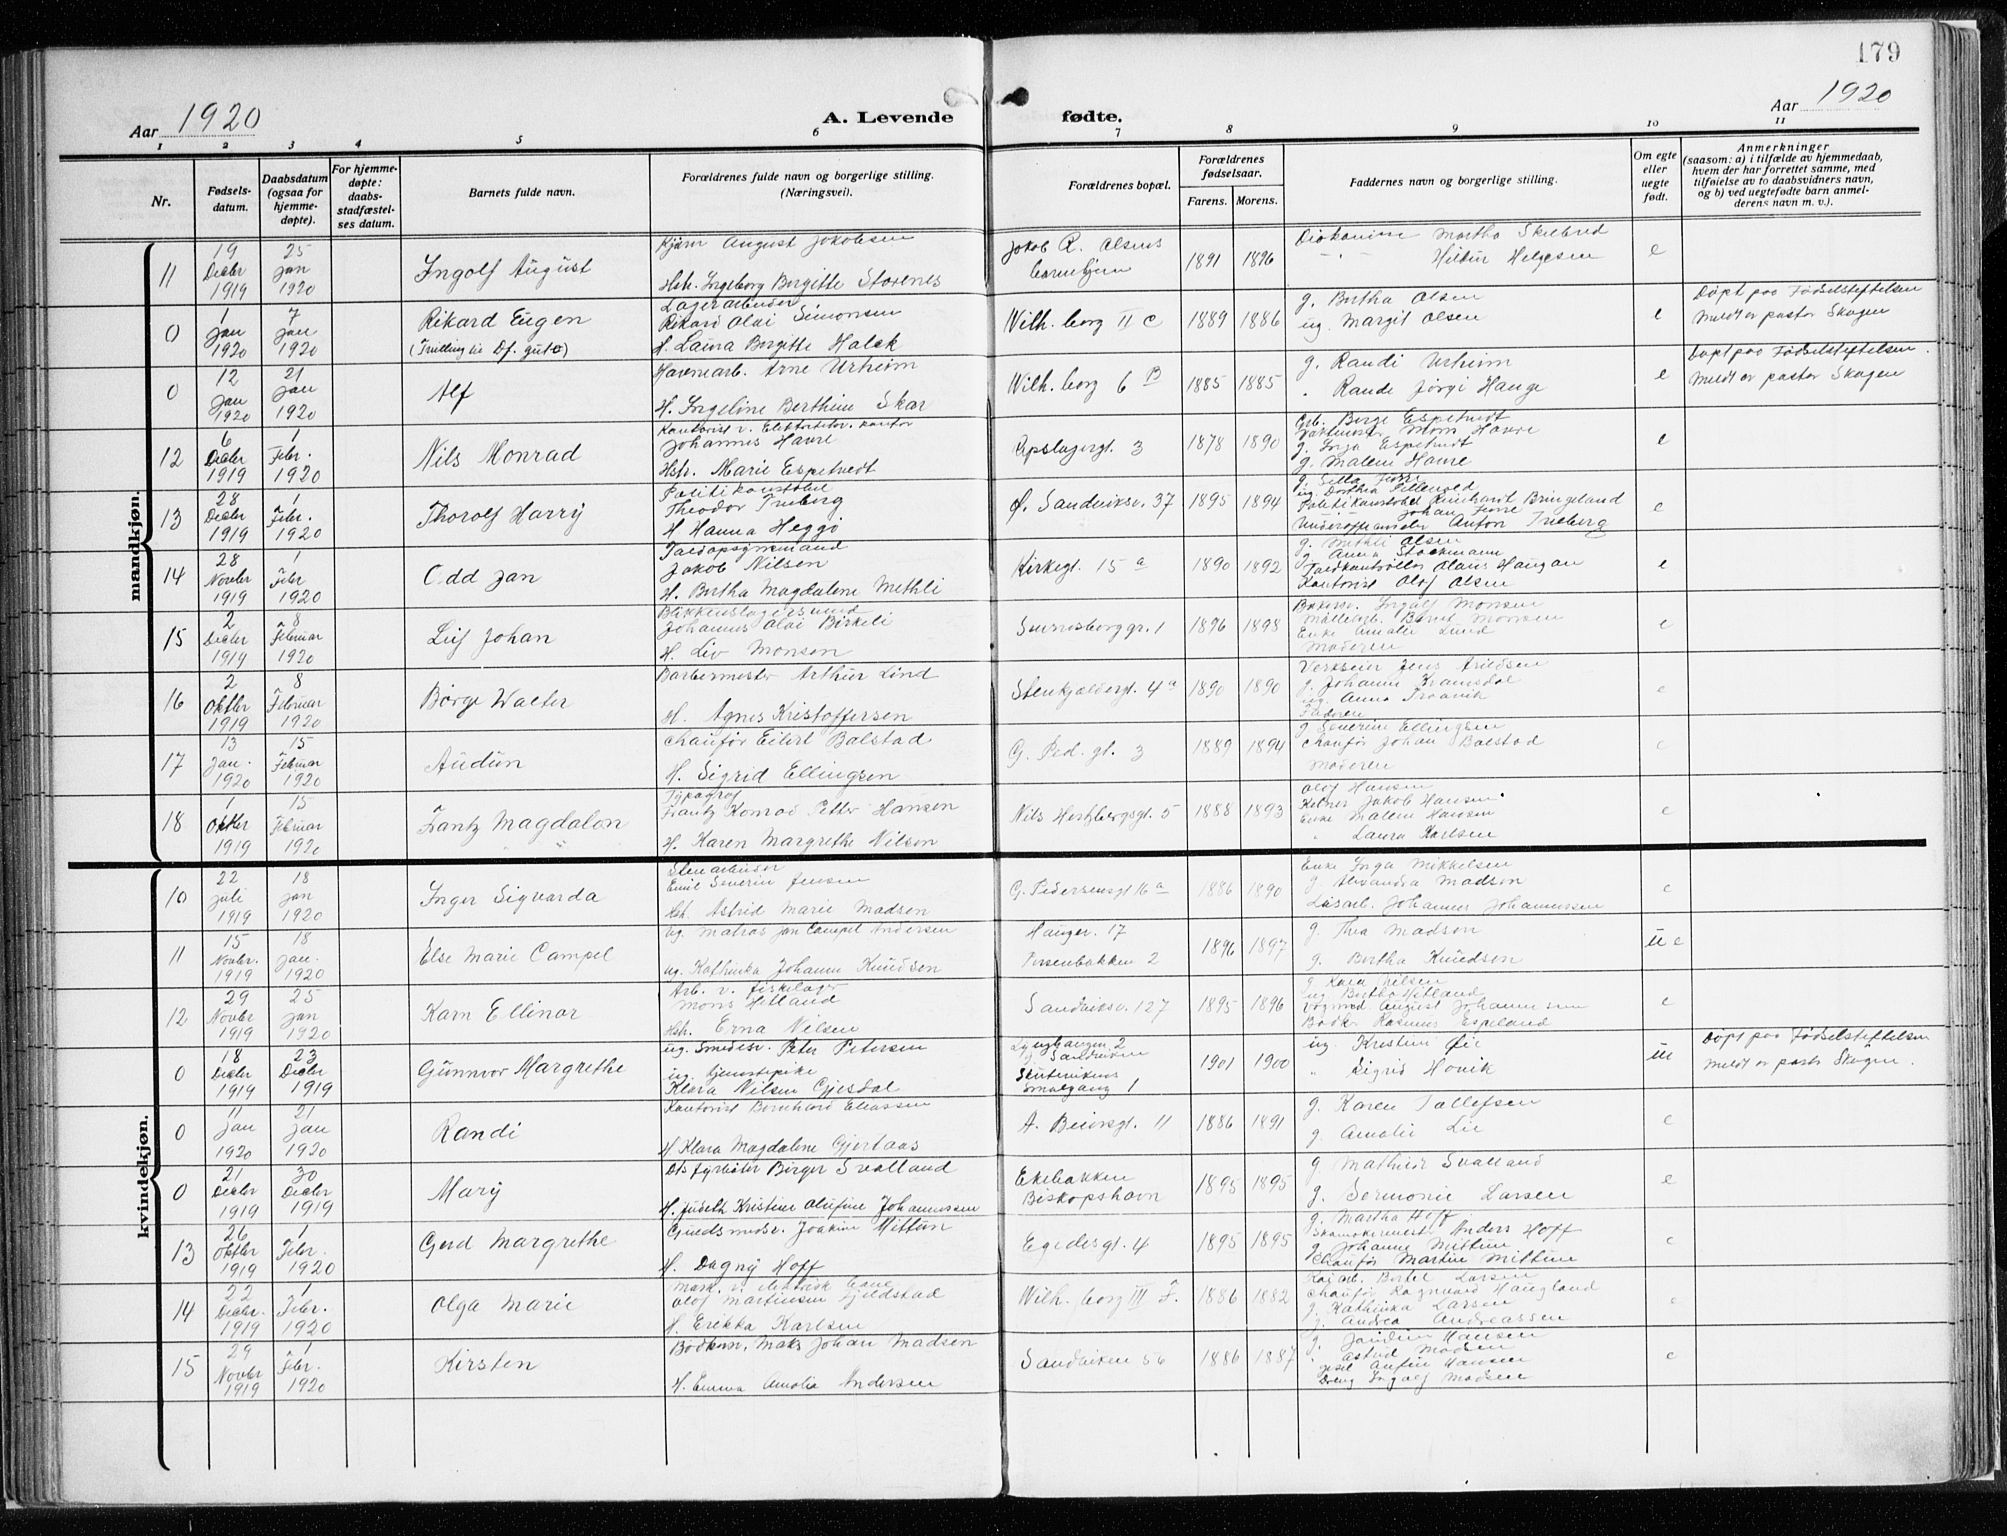 179
Aar 1920
A. Levende fødte.
Aar 1920
1 2 3 4 5 6 7 8 9 10 11
Nr.
Fødsels-
datum.
Daabsdatum
(ogsaa for
hjemme-
døpte).
For hjemme-
døpte:
daabs-
stadfæstel-
ses datum.
Barnets fulde navn.
Forældrenes fulde navn og borgerlige stilling.
(Næringsvei).
Forældrenes bopæl.
Forældrenes
fødselsaar.
Farens. Morens.
Faddernes navn og borgerlige stilling.
Om egte
eller
uegte
født.
Anmerkninger
(saasom: a) i tilfælde av hjemmedaab,
hvem der har forrettet samme, med
tilføielse av to daabsvidners navn,
og b) ved uegtefødte barn anmel-
derens navn m. v.).
mandkjøn.
11
19
Decbr
1919
25
Jan
1920
Ingolf August
August Jakobsen
Hstr. Ingeborg Birgitte Storenes
Jakob R. Olsens
1891 1896
Diakonisse Martha Skilbred
Hildur Helgesen
e
0
1
Jan
1920
7
Jan
1920
Rikard Eugen
Lagerarbeider
Rikard Olai Simonsen
H. Laura Birgitte Halck
Wilh. borg II C
1889 1886
g. Bertha Olsen
ug. Margit Olsen
e
Døpt paa Fødselstiftelsen
meldt av pastor Skagen
0
12
Jan
1920
21
Jan
1920
Alf
Havnearb. Arne Urheim
H. Ingeline Berthine Skar
Wilh. borg 6 B
1885 1885
g. Randi Urheim
" Randi Jørgi Hauge
e
Døpt paa Fødselstiftelsen.
meldt av pastor Skagen
12
6
Decbr
1919
1
Febr.
1920
Nils Monrad
Kontorist v. kontor
Johannes Havre
Hstr. Marie Espetvedt
Repslagergt. 3
1878 1890
Børge Espetvedt
Mons Havre
g. Inga Espetvedt
g. Malene Havre
e
13
28
Decbr
1919
1
Febr.
1920
Thorolf Harry
Politikonstabel
Theodor Treberg
H Hanna Heggø
Ø. Sandviksv. 37
1895 1894
Politikonstabel Reinhardt Bringeland
Underofficer Anton Treberg
e
14
28
Novbr
1919
1
Febr
1920
Odd Jan
Jakob Nilsen
H. Bertha Magdalene Methli
Kirkegt. 15 a
1890 1892
g. Methli Olsen
g. Anna Stockmann
Toldkontrollør Olaus Haugan
Kontorist Olaf Olsen
e
15
2
Decbr
1919
8
Februar
1920
Leif Johan
Blikkenslagersvend
Johannes Olai Birkeli
H. Liv Monsen
1
1896 1898
Bakersv. Ingolf Monsen
Bernt Monsen
Enke Amalie Lund
Moderen
e
16
2
Oktbr
1919
8
Februar
1920
Børge Walter
Barbermester Arthur Lind
H. Agnes Kristoffersen
Stenkjeldergt. 4 a
1890 1890
Verkseier Jens Arildsen
g. Johanne Kramsdal
ug. Anna
Faderen
e
17
13
Jan.
1920
15
Februar
1920
Audun
Chauffør Eilert Balstad
H. Sigrid Ellingsen
G. Ped. gt. 3
1889 1894
g. Severine Ellingsen
Chaufør Johan Balstad
Moderen
e
18
1
Oktbr
1919
15
Februar
1920
Frantz Magdalon
Typograf
Frantz Konrad Petter Hansen
H. Karen Margrethe Nilsen
Nils Hertzbergsgt. 5
1888 1893
Olaf Hansen
Kelner Jakob Hansen
Enke Malene Hansen
" Laura Karlsen
e
kvindekjøn.
10
22
juli
1919
18
Jan
1920
Inger Sigvarda
Stenarbeider
Emil Severin Jensen
Hst. Astrid Marie Madsen
G. Pedersensgt 16 a
1886 1890
Enke Inga Mikkelsen
g. Alexandra Madsen
Løsarb. Johannes Johannessen
e
11
15
Novbr.
1919
18
Jan.
1920
Else Marie Campel
ug. Matros Jan Campel Andersen
ug. Kathinka Johanne Knudsen
Hauger. 17
2
1896 1897
g. Thea Madsen
g. Bertha Knudsen
12
29
Novbr
1919
25
Jan
1920
Karn Ellinor
Arb. v. fiskelager
Mons Hitland
Hstr. Erna Nilsen
Sandviksv. 127
1895 1896
g Kaia Nilsen
ug. Bertha Hitland
Vognmd August Johannessen
Bødk. Rasmus Espeland
e
0
18
Decbr
1919
23
Decbr
1919
Gunnvor Margrethe
ug. Smedesv. Peter Petersen
ug. tjenestepike
Klara Nilsen Gjesdal
Sandviken
Smalgang 1
1901 1900
ug. Kristine Øie
" Sigrid Hovik
Døpt paa Fødselstiftelsen
meldt av pastor Skagen.
0
11
Jan
1920
21
Jan
1920
Randi
Kontorist Bernhard Eliassen
H Klara Magdalene Gjertaas
A. Beiersgt. 11
1886 1891
g. Karen Tollefsen
g. Amalie Lie
e
0
21
Decbr
1919
30
Decbr
1919
Mary
Ds fyrbøter Birger Svalland
H. Judith Kristine Olufine Johannessen
Ekebakken
Biskopshavn
1895 1895
g Mathilde Svalland
g. Larsen
e
13
26
Oktbr
1919
1
Febr.
1920
Gerd Margrethe
Guldsmedsv. Joakim Mittun
H. Dagny Hoff
Egedesgt. 4
1895 1895
g. Martha Hoff
Skomakermest Anders Hoff
g. Johanne Mittun
Chaufør Martin Mittun
e
14
22
Decbr.
1919
1
Febr.
1920
Olga Marie
Olaf Martinsen Fjeldstad
H. Erekka Karlsen
Wilh. borg III F.
1886 1882
Kaiarb. Bertel Larsen
Chaufør Ragnvald Haugland
g. Kathinka Larsen
g. Andrea Andreassen
e
15
29
Novbr
1919
1
Febr.
1920
Kirsten
Bødkersv. Maks Johan Madsen
H. Emma Amalia Andersen
Sandviken 56
1886 1887
g. Hansen
" Astrid Madsen
Hansen
Dreng Ingolf Madsen
e